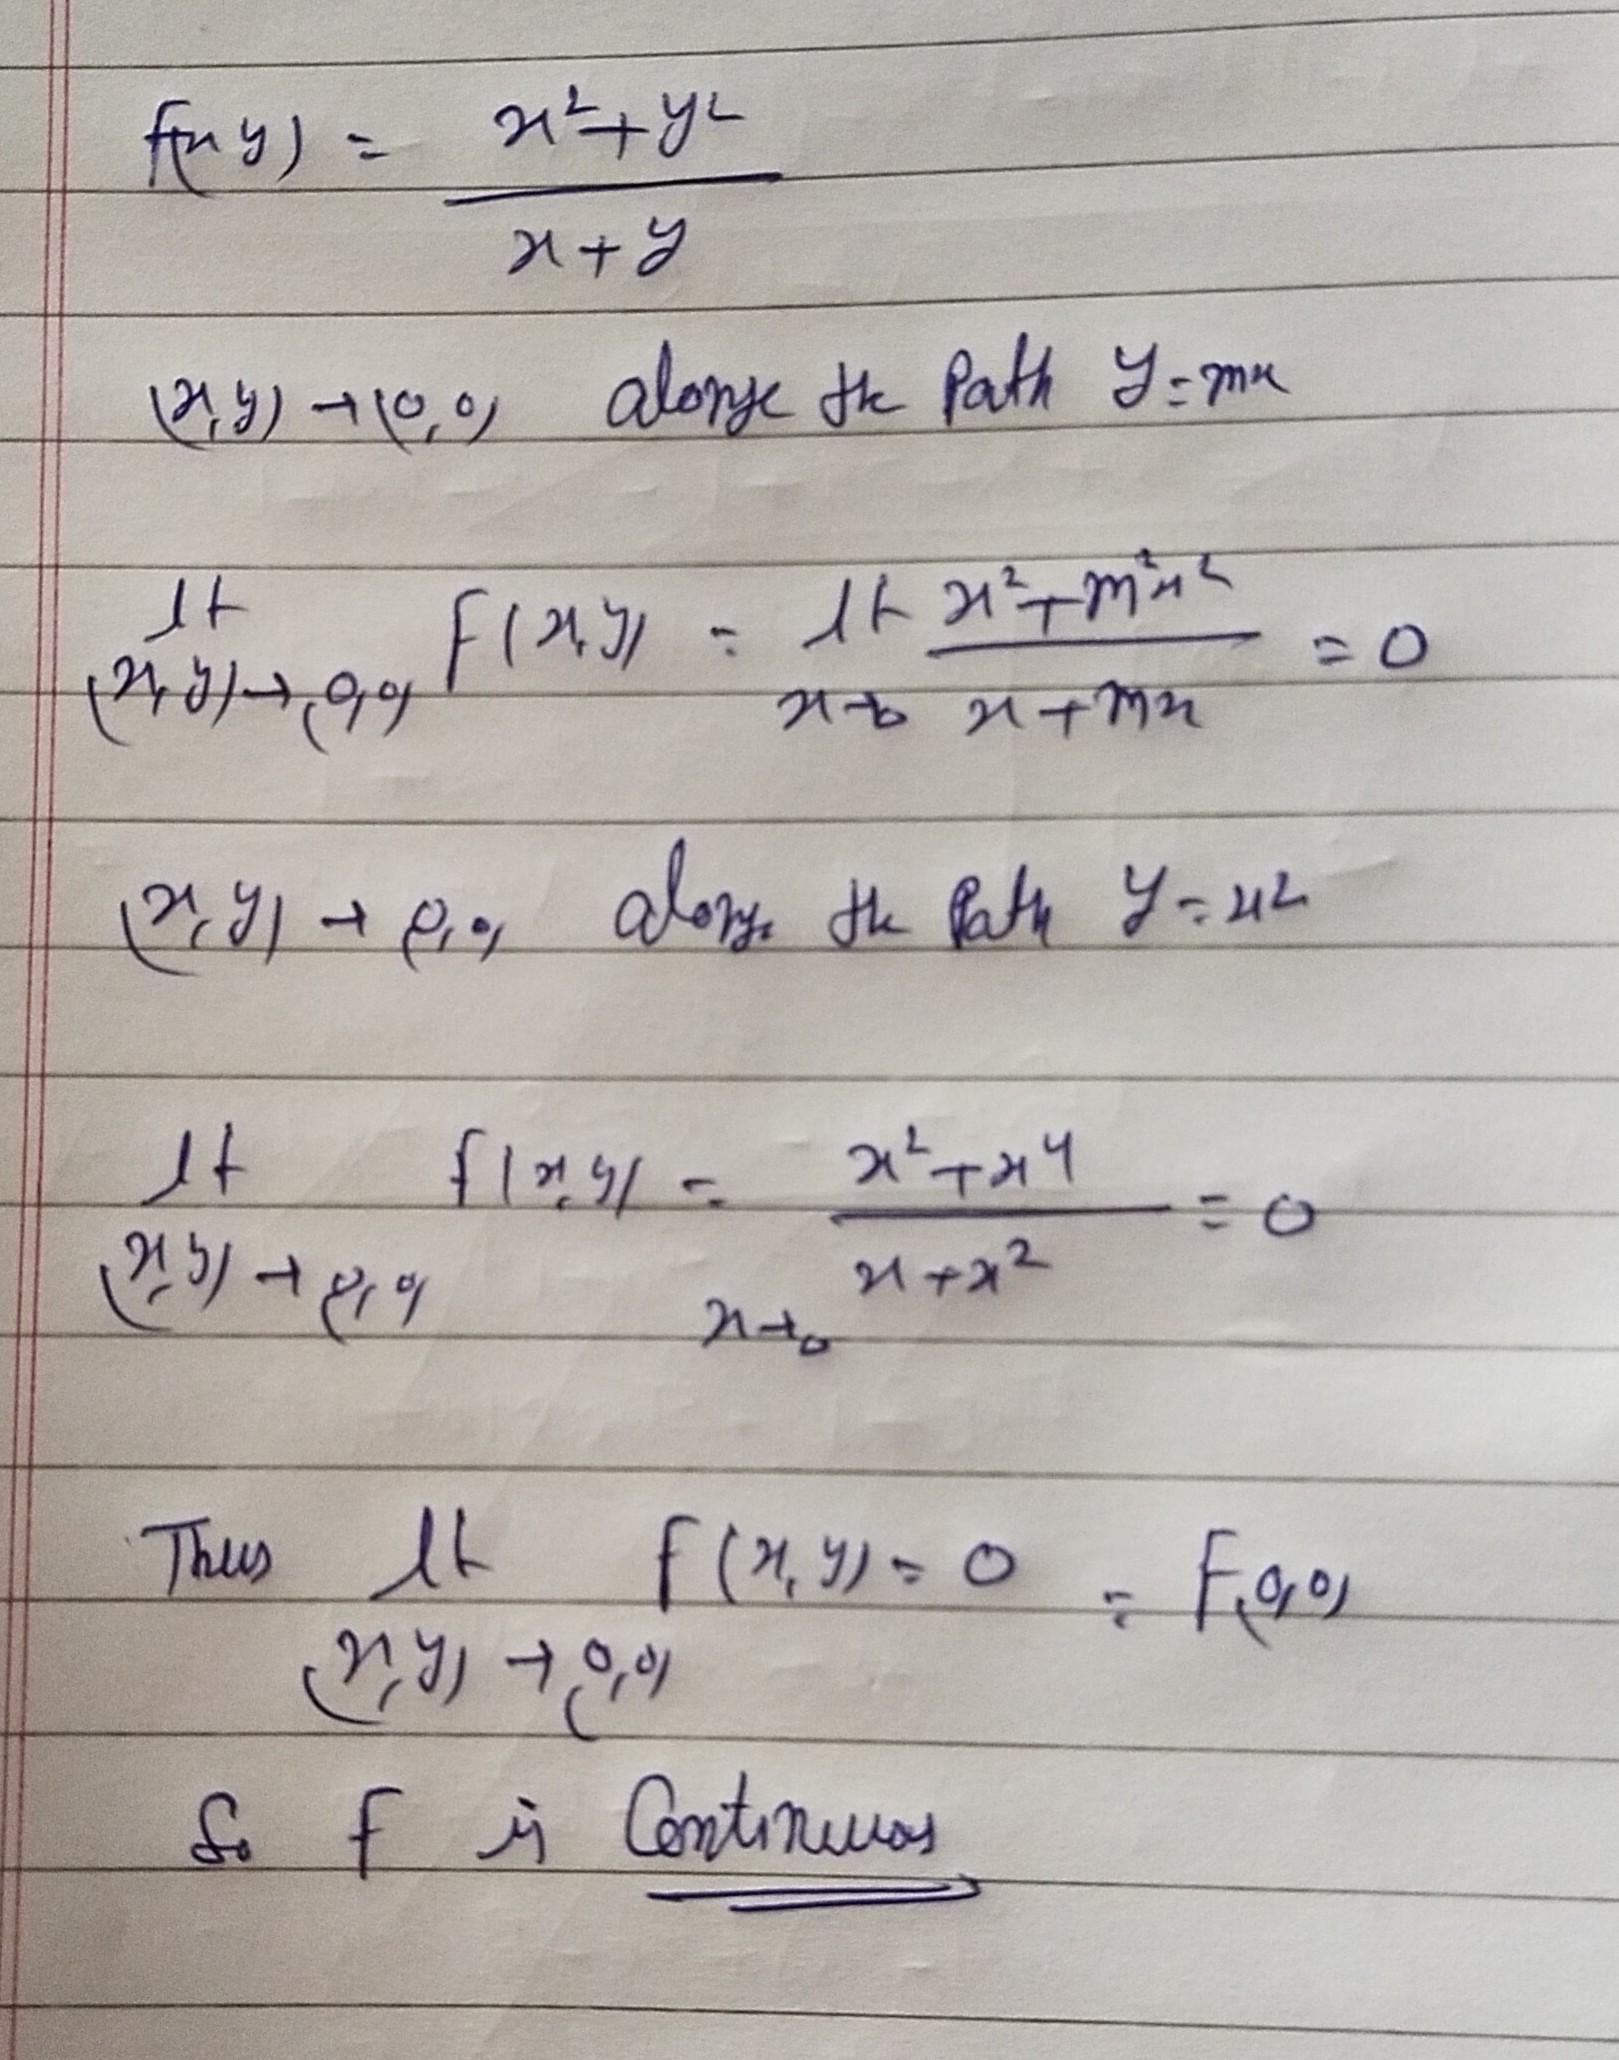 f(x y) = x² + y² / x + y
(x, y) → (0, 0) along the Path y = mx
lt (x, y) → (0, 0) f(x, y) = lt x→0 x² + m²x² / x + mx = 0
(x, y) → (0, 0) along the Path y = x²
lt (x, y) → (0, 0) f(x, y) = x→0 x² + x4 / x + x² = 0
Thus lt (x, y) → (0, 0) f(x, y) = 0 = F(0, 0)
So f is Continuous